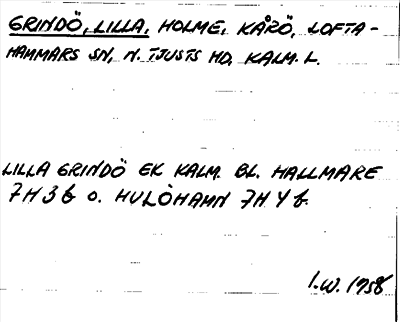 GRINDÖ, LILLA, HOLME, KÅRÖ, LOFTA-
HAMMARS SN, N. TJUSTS HD, KALM. L.
LILLA GRINDÖ EK KALM. BL. HALLMARE
7H 3b o. HULÖHAMN 7H 4b.
I.W. 1958